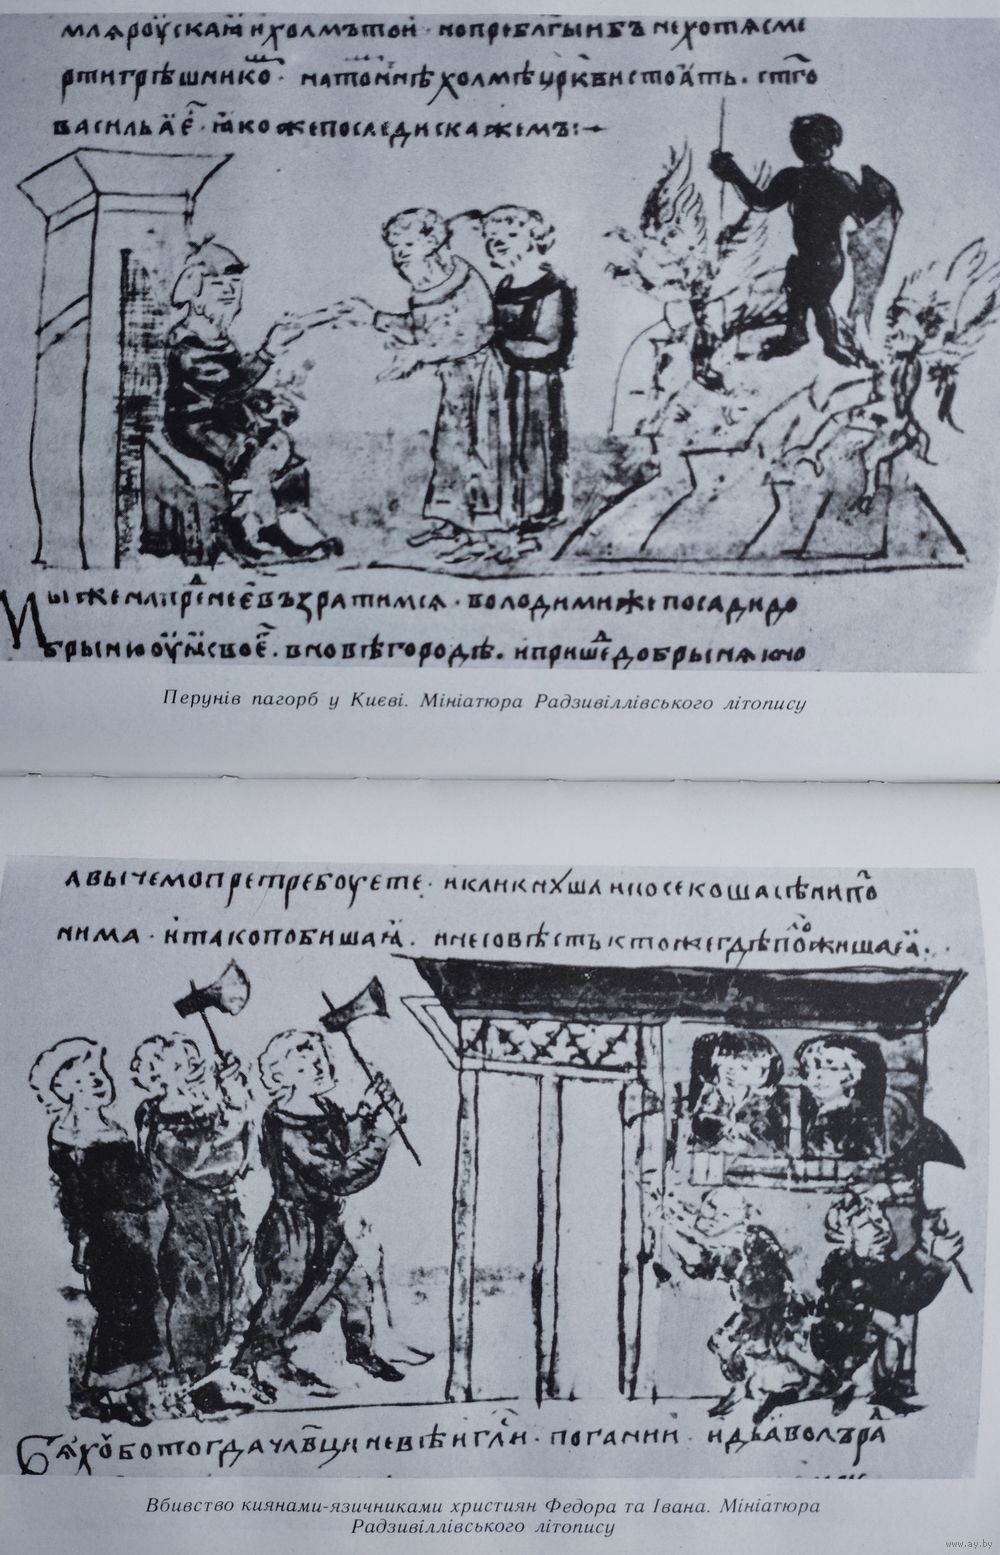 мля роускаꙗ и холмъ тои · но преблгыи бъ не хотя сме
рти грѣшнико · на томже холмѣ црк҃ви стоꙗть · ст҃го
василья е · ꙗкоже последи скажемъ :
мы же на пре нее възратимся · володимиже посади до
брыню оуꙗ свое · в новѣгородѣ · и прише добрыня к но
Перунів пагорб у Києві. Мініатюра Радзивіллівського літопису
а вы чемо претребоуете · и кликнуша и посекоша сѣни по
нима · и тако побиша ꙗ · и не свѣсть ктоже где положиша ꙗ ·
бяху бо тогда члвци невѣигли · погании · и дьаволъ ра
Вбивство киянами-язичниками християн Федора та Івана. Мініатюра
Радзивіллівського літопису
www.ay.by